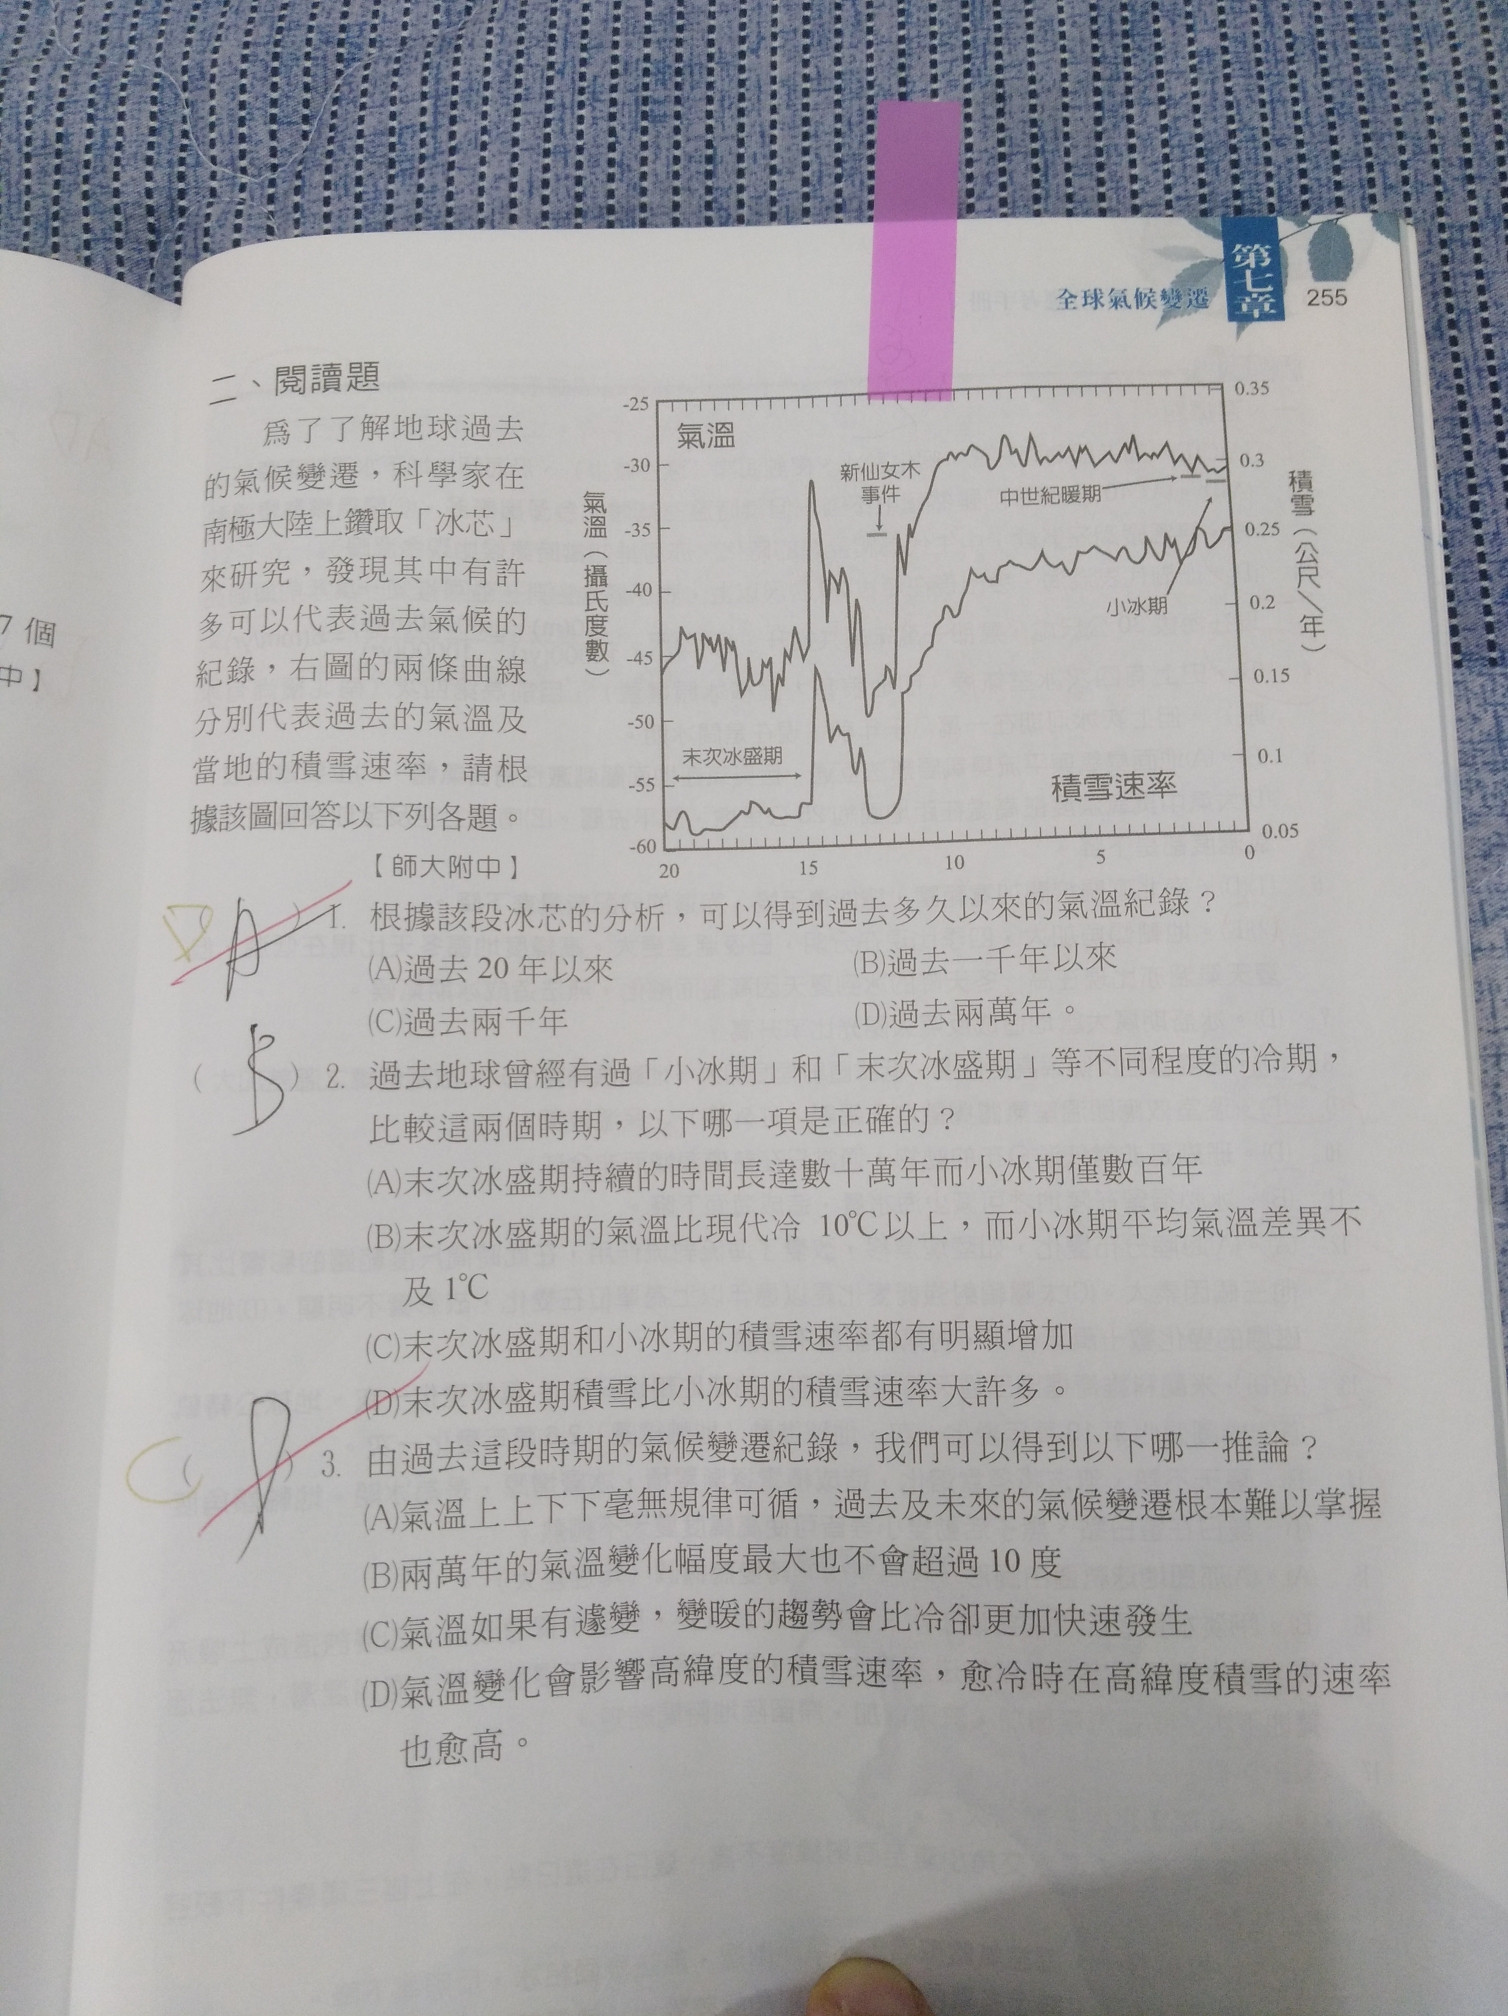 第七章
全球氣候變遷
255
二、閱讀題
為了了解地球過去
的氣候變遷，科學家在
南極大陸上鑽取「冰芯」
來研究，發現其中有許
多可以代表過去氣候的
紀錄，右圖的兩條曲線
分別代表過去的氣溫及
當地的積雪速率，請根
據該圖回答以下列各題。
【師大附中】
7 個
中】
氣溫
氣溫（攝氏度數）
-25
-30
-35
-40
-45
-50
-55
-60
新仙女木
事件
中世紀暖期
小冰期
末次冰盛期
積雪速率
積雪（公尺／年）
0.35
0.3
0.25
0.2
0.15
0.1
0.05
20
15
10
5
0
D
(A) 1. 根據該段冰芯的分析，可以得到過去多久以來的氣溫紀錄？
(A)過去 20 年以來 (B)過去一千年以來
(C)過去兩千年 (D)過去兩萬年。
(B) 2. 過去地球曾經有過「小冰期」和「末次冰盛期」等不同程度的冷期，
比較這兩個時期，以下哪一項是正確的？
(A)末次冰盛期持續的時間長達數十萬年而小冰期僅數百年
(B)末次冰盛期的氣溫比現代冷 10℃以上，而小冰期平均氣溫差異不
及 1℃
(C)末次冰盛期和小冰期的積雪速率都有明顯增加
(D)末次冰盛期積雪比小冰期的積雪速率大許多。
C
( ) 3. 由過去這段時期的氣候變遷紀錄，我們可以得到以下哪一推論？
(A)氣溫上上下下毫無規律可循，過去及未來的氣候變遷根本難以掌握
(B)兩萬年的氣溫變化幅度最大也不會超過 10 度
(C)氣溫如果有遽變，變暖的趨勢會比冷卻更加快速發生
(D)氣溫變化會影響高緯度的積雪速率，愈冷時在高緯度積雪的速率
也愈高。